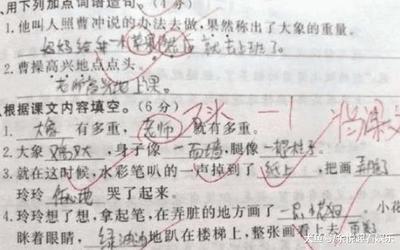 用下列加点词语造句。(4分)
1.他叫人照曹冲说的办法去做,果然称出了大象的重量。
妈妈给我一个苹果然后就去上班了。
2.曹操高兴地点点头。
老师高兴地上课。
根据课文内容填空。(6分)
1. 大象 有多重, 老师 就有多重。 -1
2.大象 又高又大 ,身子像 一面墙 ,腿像 一根柱子。
3.就在这时候,水彩笔叭的一声掉到了 纸上 ,把画 弄脏了
玲玲 伤心地 哭了起来。
4.玲玲想了想,拿起笔,在弄脏的地方画了 一只 小花
眯着眼睛, 懒洋洋 地趴在楼梯上,整张画看上去 更